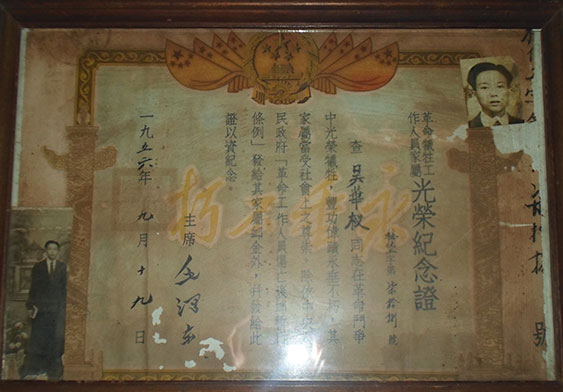 革命犧牲工
作人員家屬
光榮紀念證
字第
號
查吳華权同志在革命鬥爭
中光榮犧牲,豐功偉績永垂不朽,其
家屬當受社會上之尊崇。除依
民政府「革命工作人員傷亡撫卹暫行
條例」發給其家屬卹金外,並發給此
證以資紀念。
主席 毛泽东
一九五六年 九月 十九日
永垂不朽
號